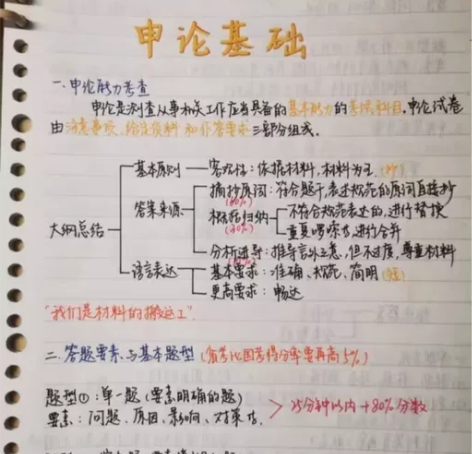 申论基础
一.申论能力考查
申论是测查从事机关工作应当具备的基本能力的考试科目.申论试卷
由注意事项、给定资料和作答要求三部分组成。
大纲总结
基本原则——客观性:依据材料,材料为王.
答案来源
摘抄原词:符合题干,表述规范的原词直接抄
(60%)
概括归纳
(30%)
不符合规范表述的,进行替换
重复啰嗦的,进行合并
分析推导:推导言外之意,但不过度,尊重材料
(10%)
语言表达
基本要求:准确、规范、简明
更高要求:畅达
"我们是材料的搬运工".
二.答题要素与基本题型(省考比国考得分率要再高5%)
题型①:单一题(要素明确的题)
要素:问题、原因、影响、对策等.
> 25分钟以内+80%分数